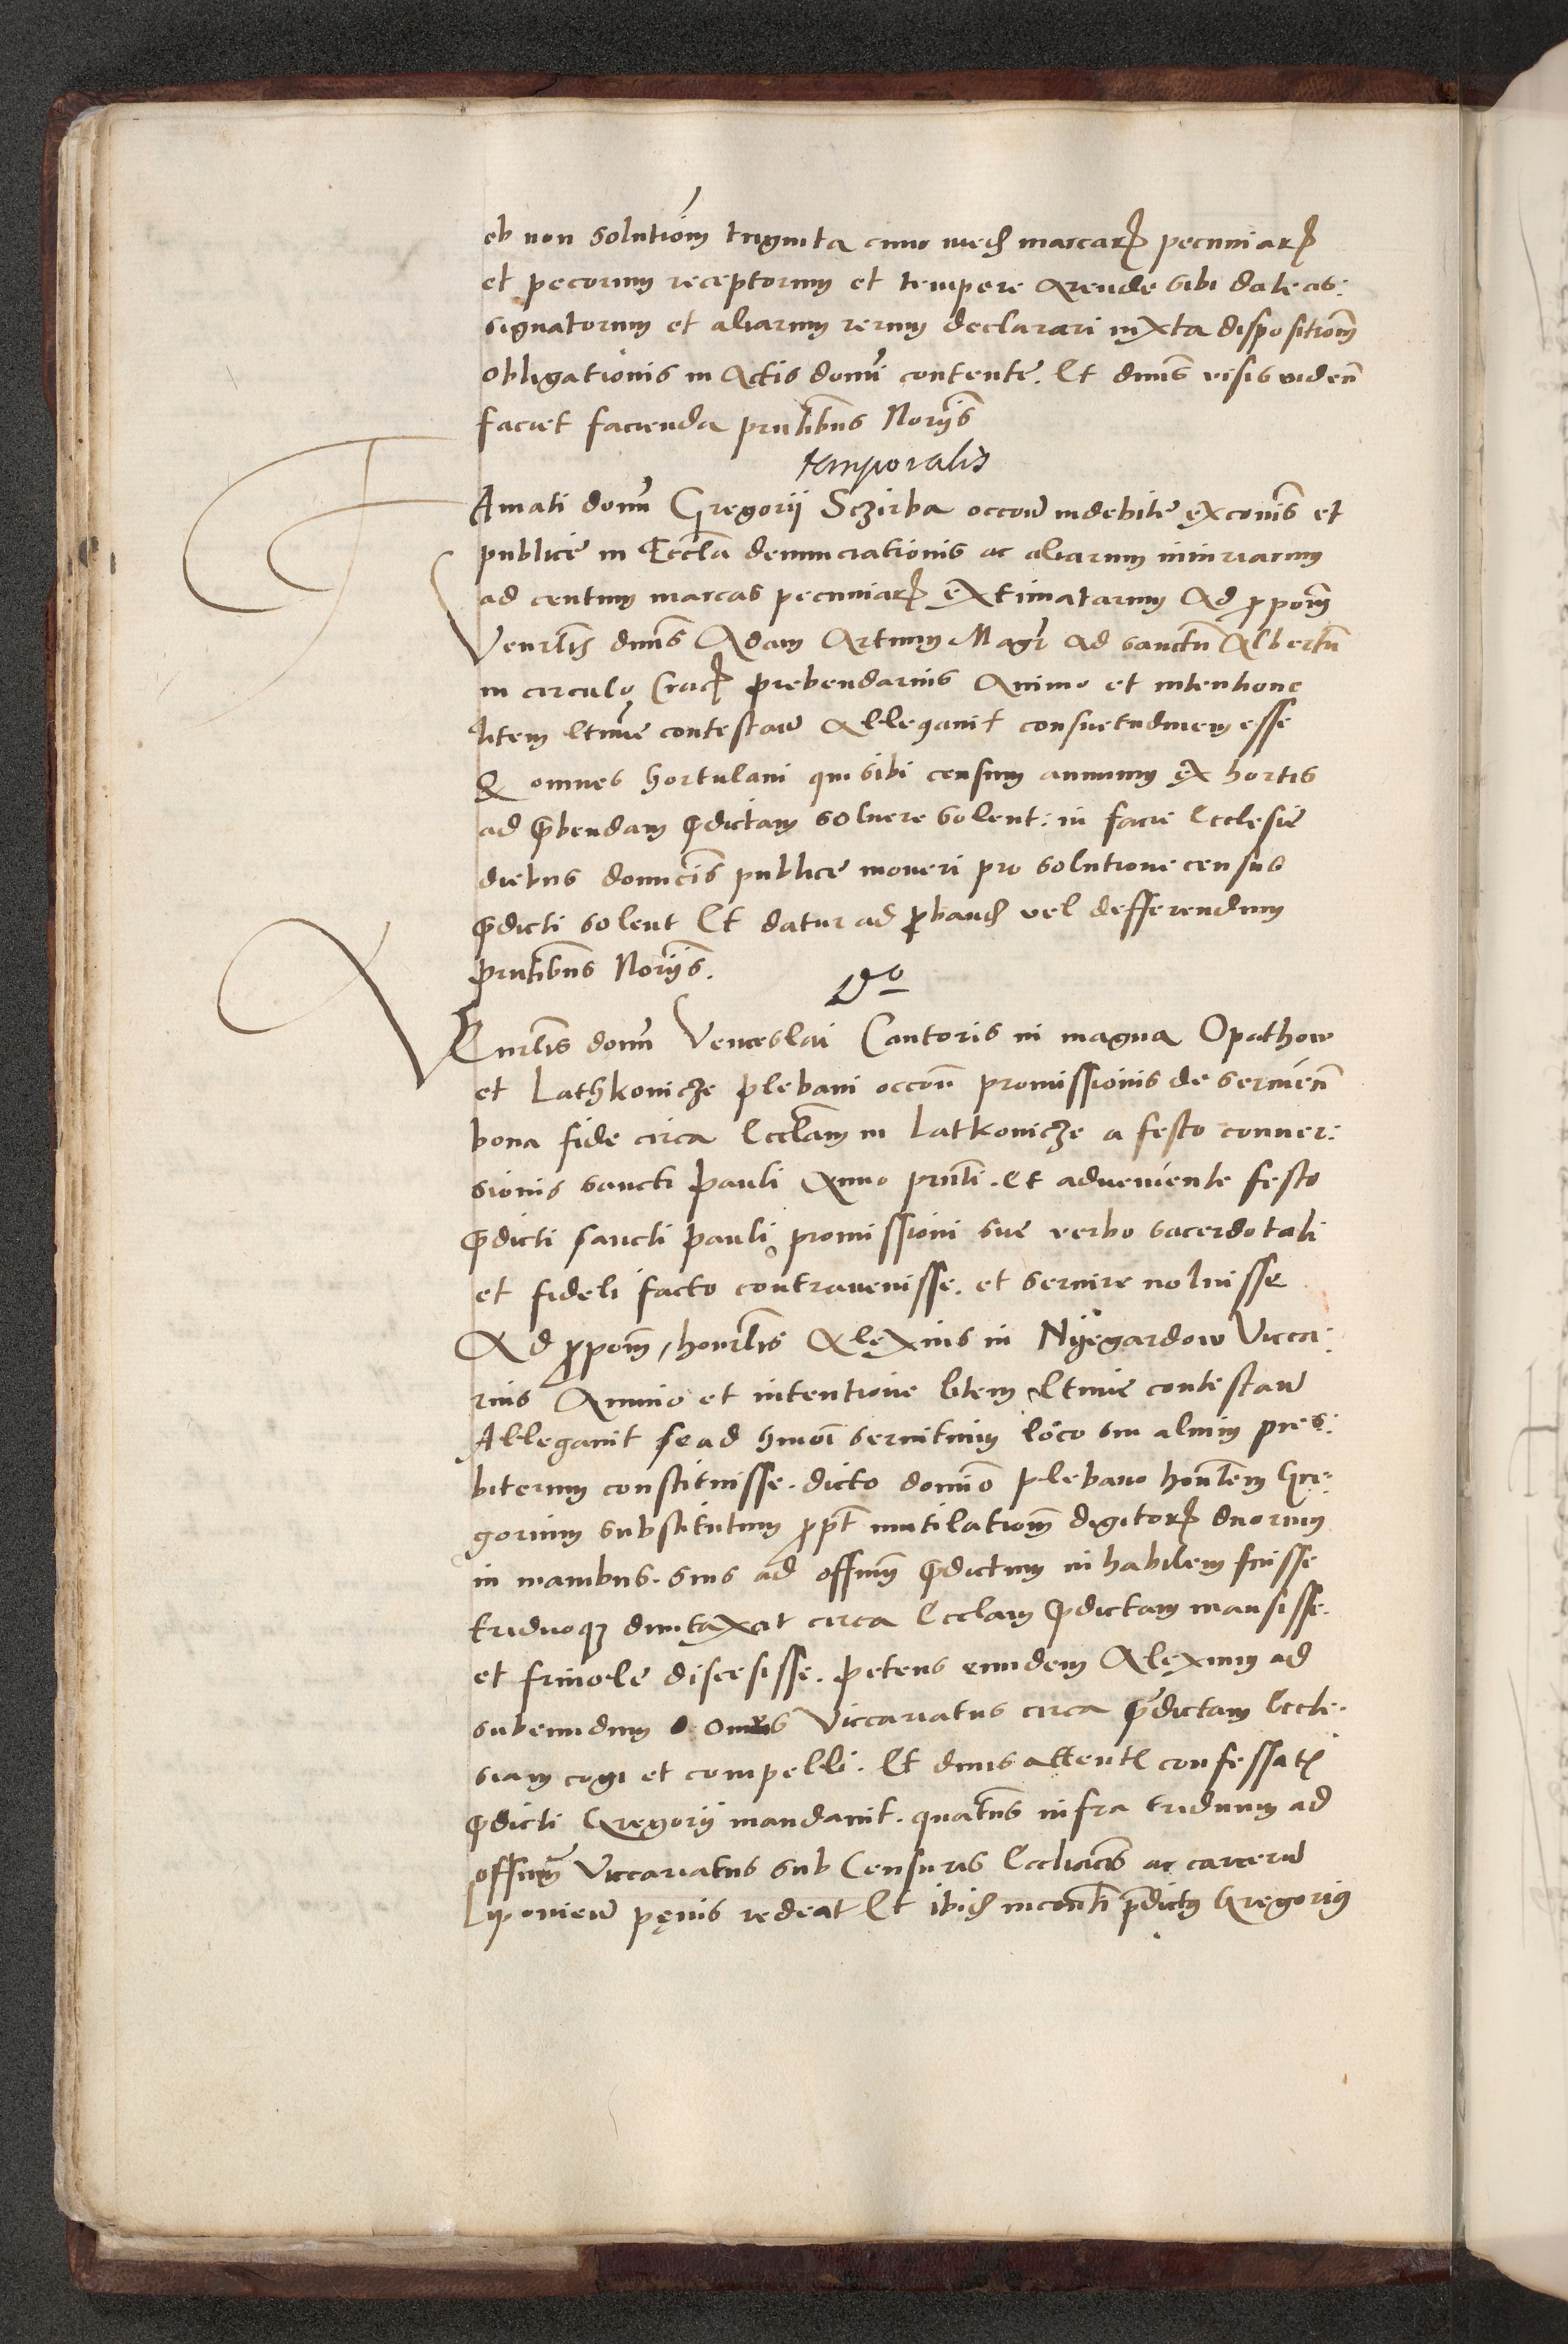 ob non solutiom triginta cum med marcar pecuniar
et pecorum receptorum et tempore Arende sibi date as:
signatorum et aliarum rerum declarari iuxta dispositiom
Obligationis in Actis domi contente. Et dnus visis viden
faciet facienda pntibus Norijs
temporalis
Famati domi Gregorij Sczirba occoe indebite exconis et
publice in Eccla denunciationis ac aliarum iniuriarum
ad centum marcas pecuniar extimatarum Ad ppom
Venrlis dnus Adam Artium Magr ad sanctu Albertu
in circulo Crac prebendarius Animo et intentione
litem ltime contestan Allegauit consuetudinem esse
Q omnes hortulani qui sibi censum annuum ex hortis
ad pbendam pdictam soluere solent: in facie Ecclesie
diebus domicis publice moneri pro solutione census
pdicti solent Et datur ad pband vel defferendum
pntibus Norijs.
Do
VEnrlis domi Venceslai Cantoris in magna Opathow
et Lathkonicze plebani occoe promissionis de seruien
bona fide circa Ecclam in Latkonicze a festo conuer:
sionis sancti Pauli Anno pnti. Et adueniente festo
pdicti sancti Pauli promissioni sue verbo sacerdotali
et fideli facto contrauenisse. et seruire noluisse
Ad ppom, honrlis Alexius in Nyegardow Vicca:
rius Animo et intentione litem ltime contestan
Allegauit se ad hmoi seruitium loco sui alium pres:
biterum constituisse. dicto domino plebano hontem Gre:
gorium substitutum ppt mutilatiom digitor duorum
in manibus. suis ad offium pdictum inhabilem fuisse
triduoq duntaxat circa Ecclam pdictam mansisse.
et friuole discesisse. petens eundem Alexium ad
subeundum onus Viccariatus circa pdictam Eccle.
siam cogi et compelli. Et dnus attent confessat
pdicti Gregorij mandauit. quatenus infra triduum ad
offium Viccariatus sub Censuris Ecclicis ac carceru
Lipouieu penis redeat Et ibid inconti pdictus Gregorius